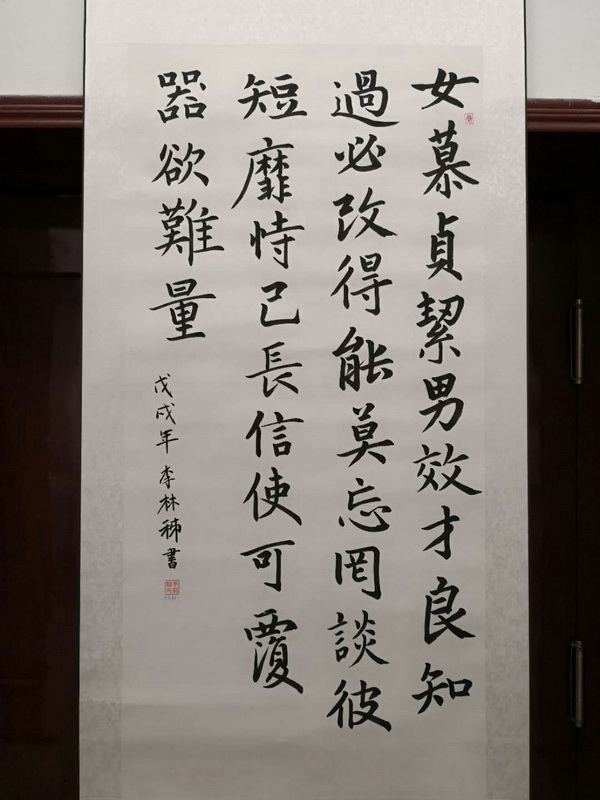 女慕貞絜男效才良知
過必改得能莫忘罔談彼
短靡恃己長信使可覆
器欲難量
戊戌年 李林秭書